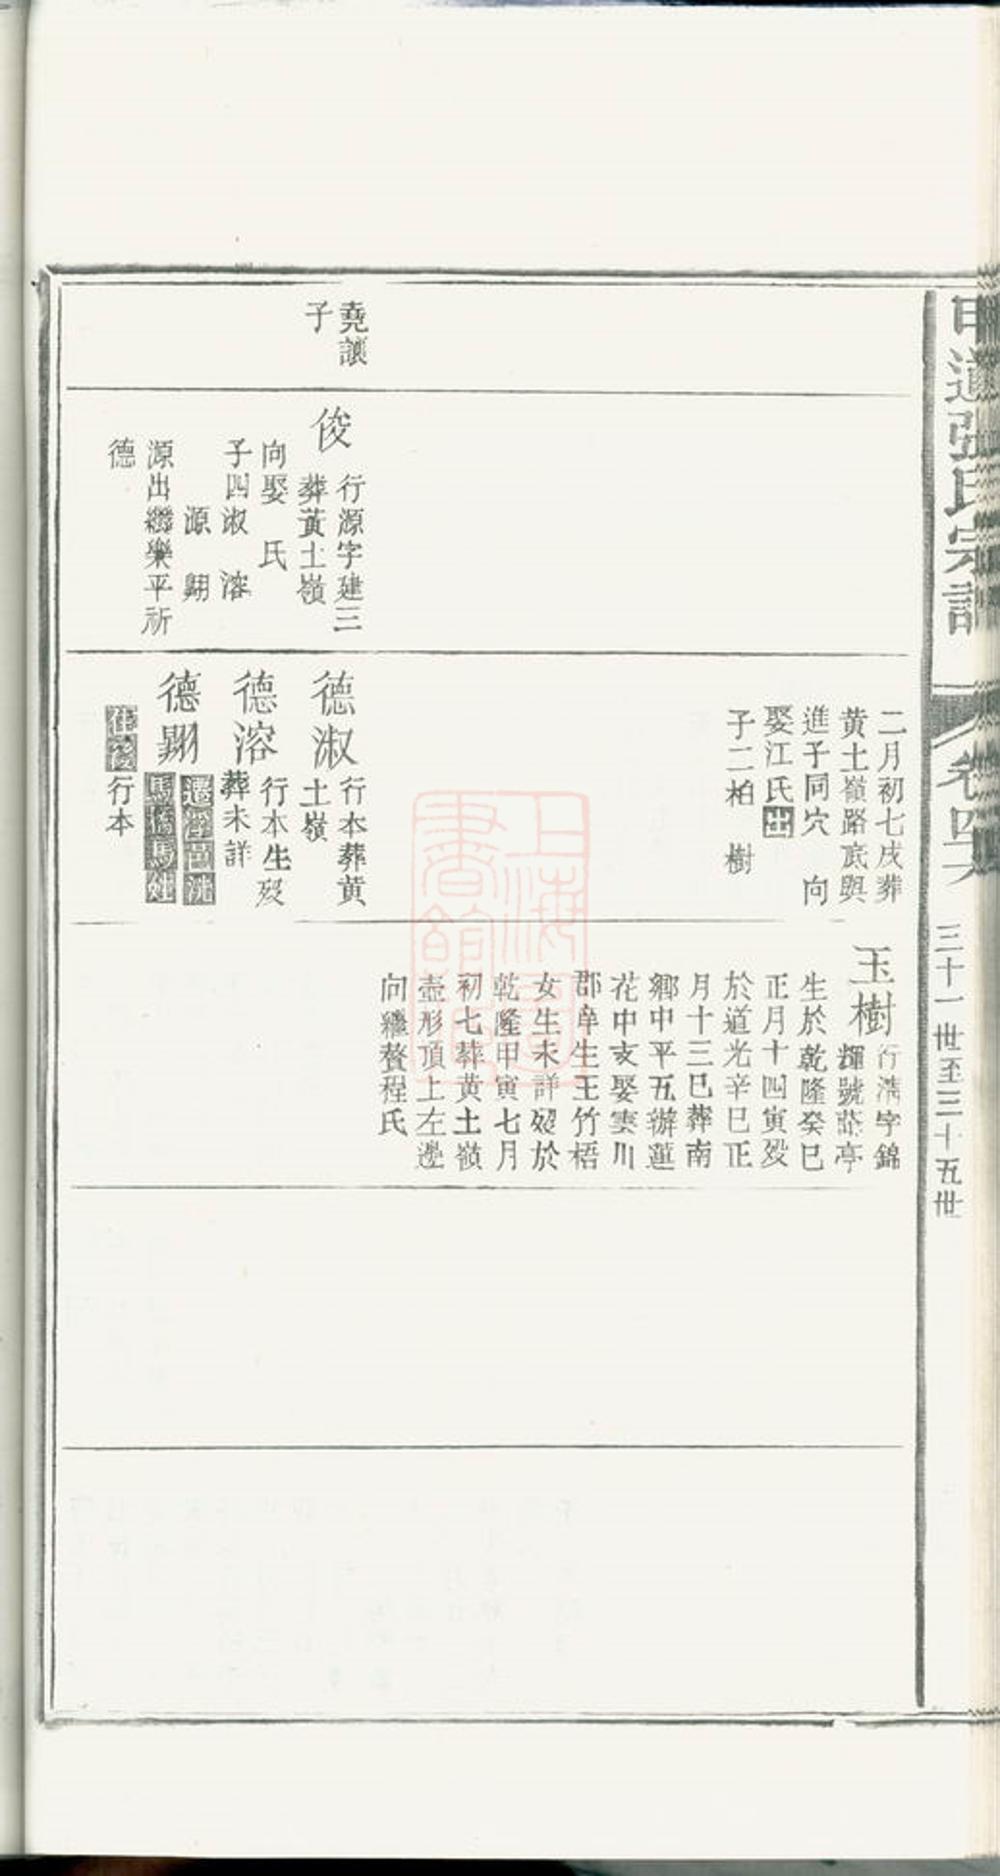 甲道張氏宗譜
卷四六
三十一世至三十五世
堯讓
子
俊
行源字建三
葬黃土嶺
向娶　氏
子四淑　溶
源　翺
源出繼樂平祈
德
二月初七戌葬
黃土嶺路底與
進子同穴　向
娶江氏出
子二柏　樹
德淑
行本葬黃
土嶺
德溶
行本生歿
葬未詳
德翺
遷浮邑洗
馬橋馬鞋
住後
行本
玉樹
行清字錦
輝號蔭亭
生於乾隆癸巳
正月十四寅歿
於道光辛巳正
月十三巳葬南
鄉中平五瓣蓮
花中支娶雲川
郡庠生王竹梧
女生未詳歿於
乾隆甲寅七月
初七葬黃土嶺
壺形頂上左邊
向繼贅程氏
上海圖書館藏